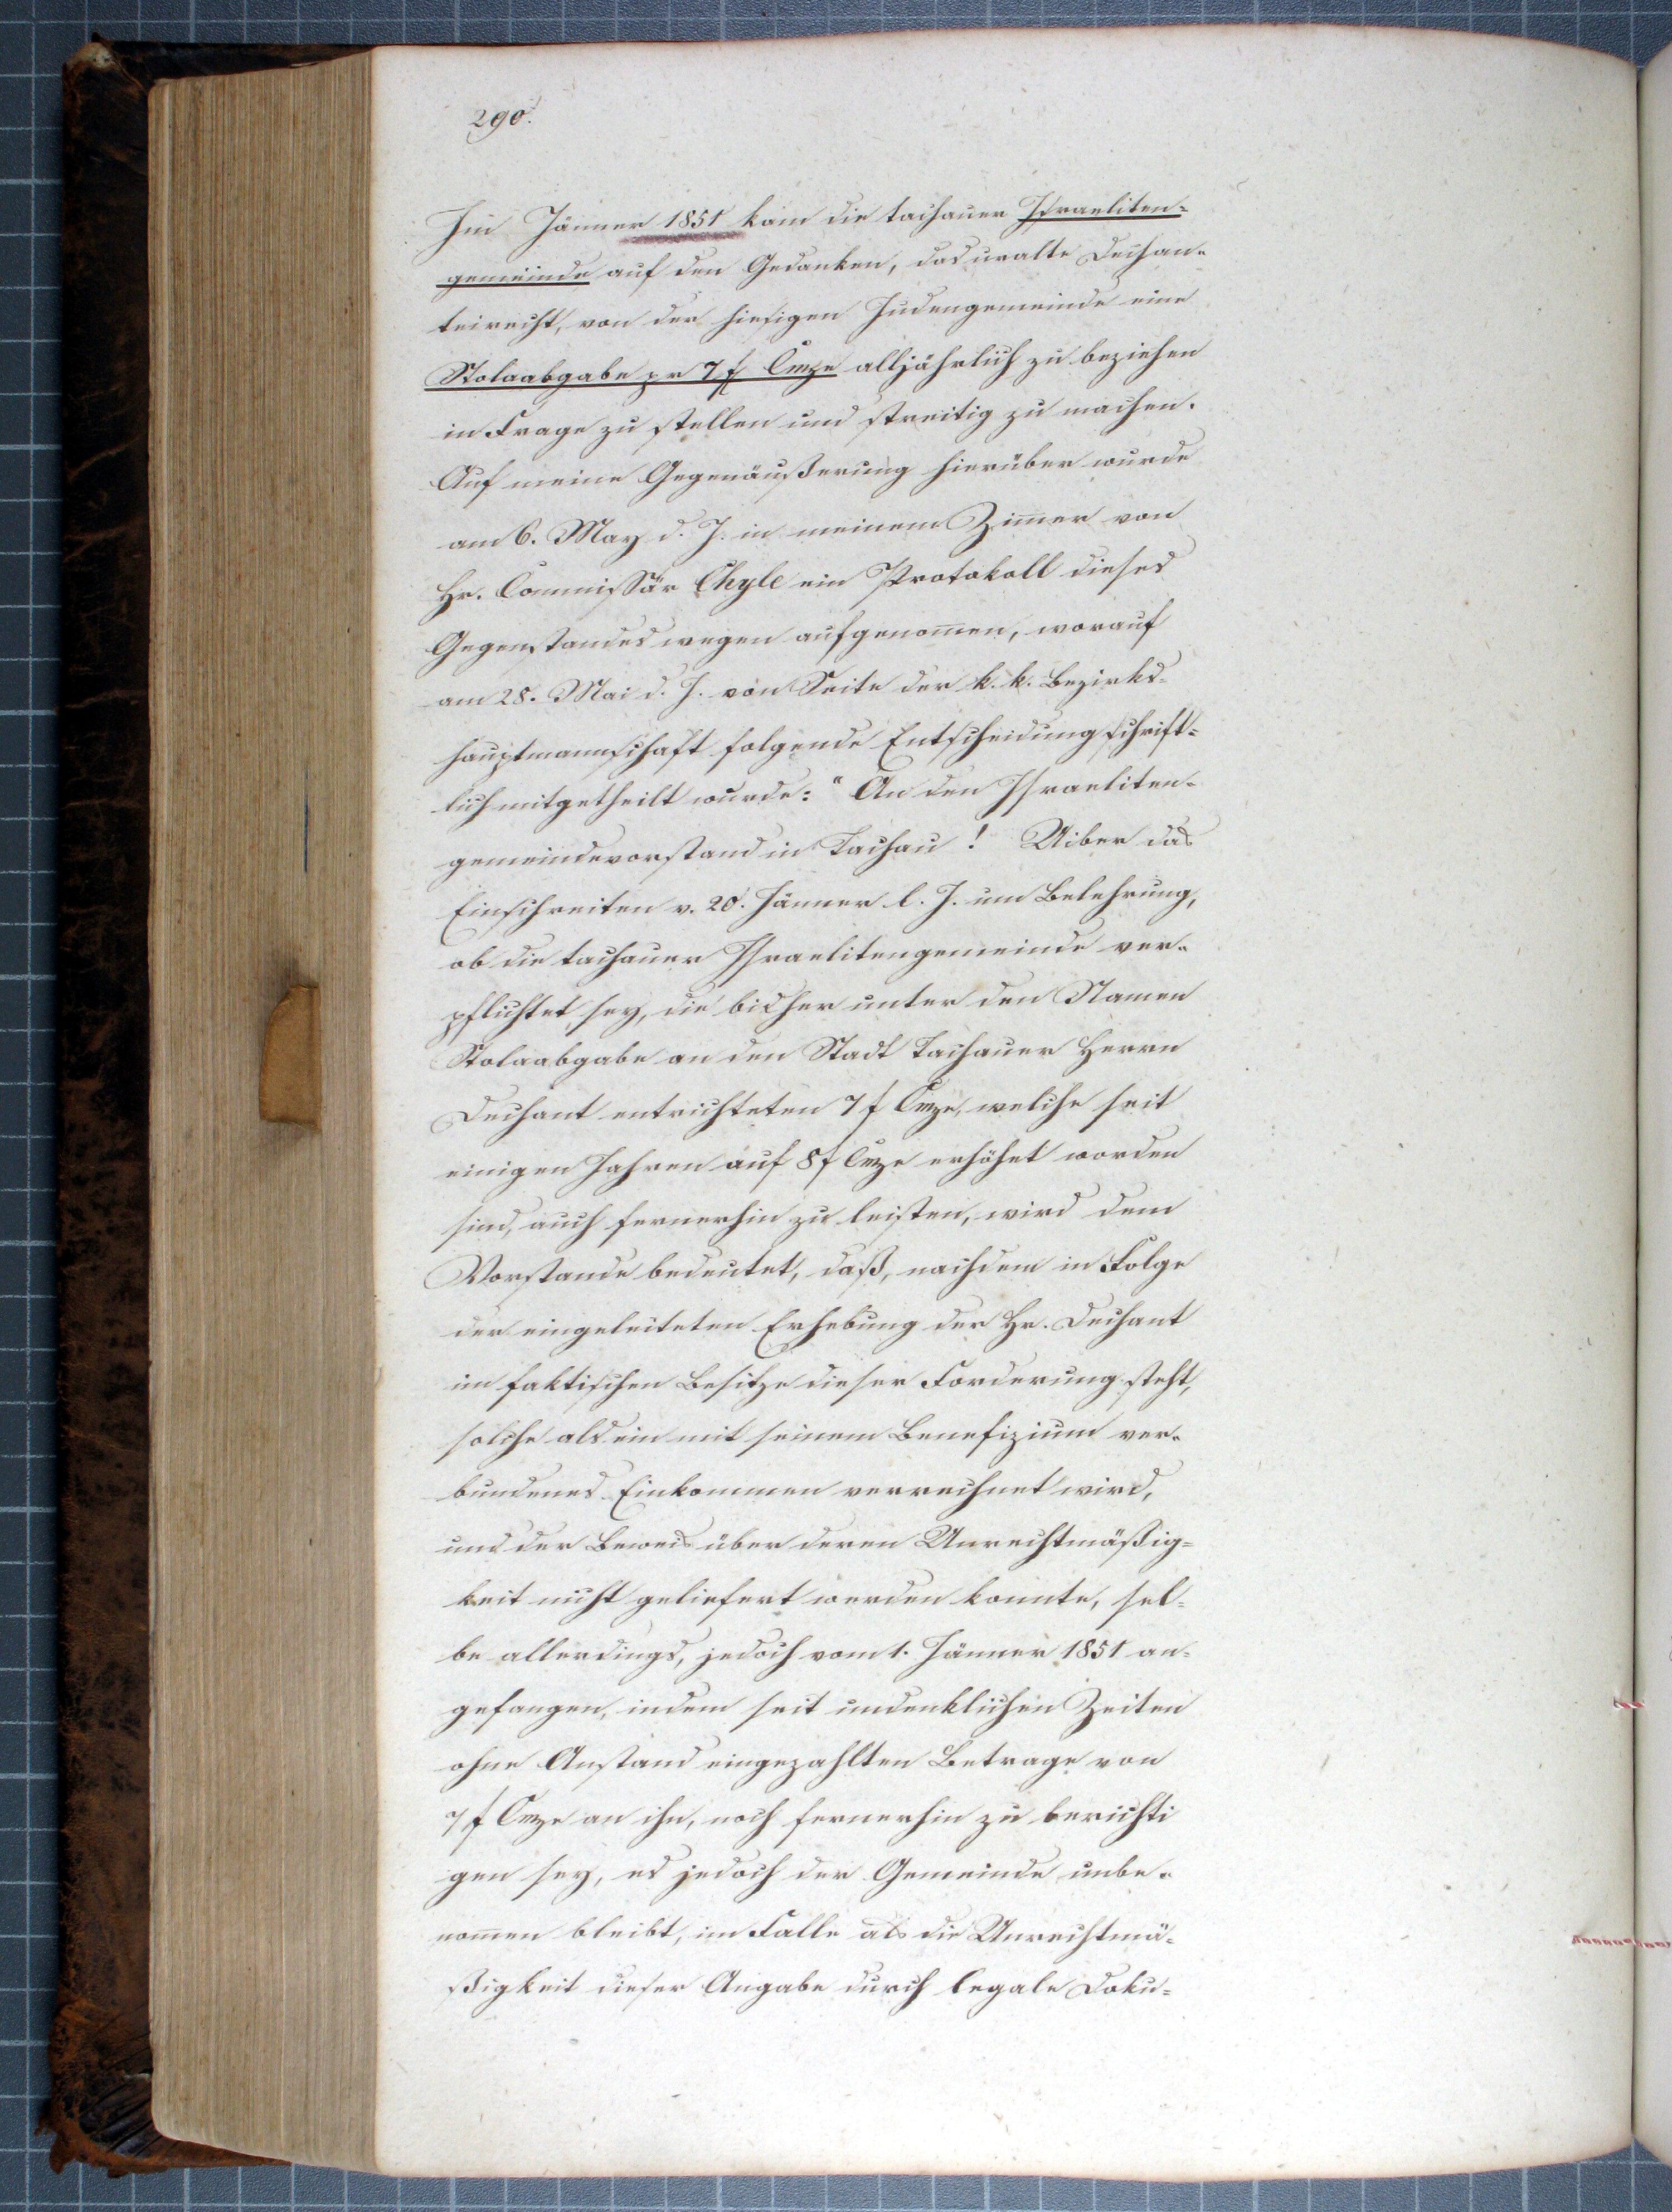 290.
Im Jänner 1851 kam die tachauer Israeliten-
gemeinde auf den Gedanken, das uralte Dechan-
teirecht, von der hiesigen Judengemeinde eine
Stolaabgabe pr 7 f CMze alljährlich zu beziehen
in Frage zu stellen und streitig zu machen.
Auf meine Gegenäußerung hierüber wurde
am 6. May d. J. in meinem Zimmer von
Hr. Commissär Chyle ein Protokoll dieses
Gegenstandes wegen aufgenommen, worauf
am 28. Mai d. J. von Seite der k. k. Bezirks-
hauptmannschaft folgende Entscheidung schrift-
lich mitgetheilt wurde: "An den Israeliten-
gemeindevorstand in Tachau! Uiber das
Einschreiten v. 20. Jänner l. J. um Belehrung,
ob die tachauer Israelitengemeinde ver-
pflichtet sey, die bisher unter den Namen
Stolaabgabe an den Stadt Tachauer Herrn
Dechant entrichteten 7 f CMze, welche seit
einigen Jahren auf 8 f CMze erhöhet worden
sind, auch fernerhin zu leisten, wird dem
Vorstande bedeutet, daß, nachdem in Folge
der eingeleiteten Erhebung der Hr. Dechant
im faktischen Besitze dieser Forderung steht,
solche als ein mit seinem Benefizium ver-
bundenes Einkommen verrechnet wird,
und der Beweis über deren Unrechtmäßig-
keit nicht geliefert werden konnte, sel-
be allerdings, jedoch vom 1. Jänner 1851 an-
gefangen, indem seit undenklichen Zeiten
ohne Anstand eingezahlten Betrage von
7 f CMze an ihn, noch fernerhin zu berichti
gen sey, es jedoch der Gemeinde unbe-
nommen bleibt, im Falle als die Unrechtmä-
ßigkeit dieser Angabe durch legale Doku-